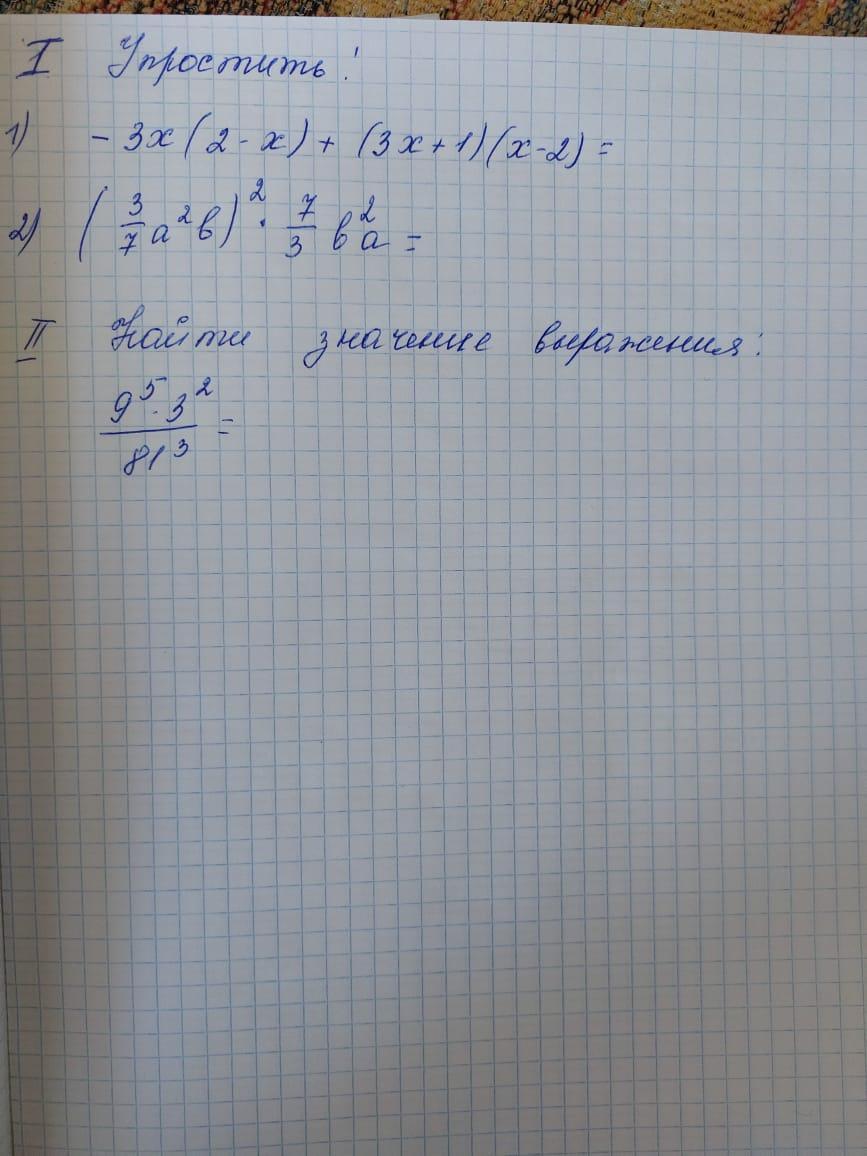 I Упростить!
1) - 3x(2 - x) + (3x + 1)(x - 2) =
2) (3/7 a²b)² · 7/3 b²a =
II Найти значение выражения:
9⁵ · 3² / 81³ =